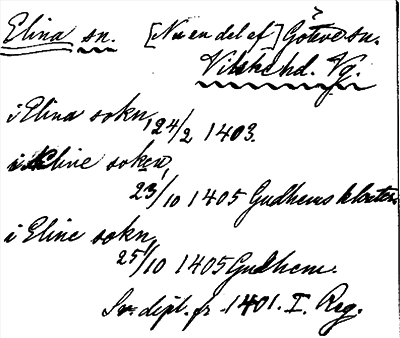 Elina sn. [Nu en del af] Götve sn.
Vilske hd. Vg.
i Elina sokn, 24/2 1403.
i Eline sokn,
23/10 1405 Gudhems kloster.
i Eline sokn,
25/10 1405 Gudhem.
Sv. dipl. fr. 1401. I. Reg.